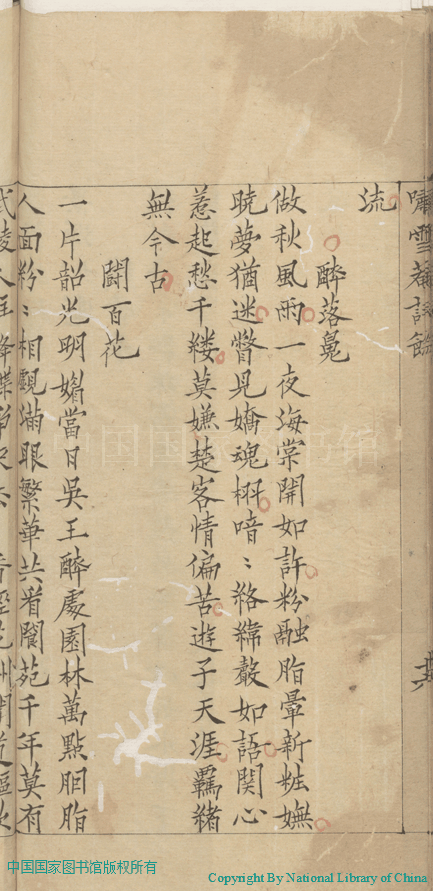 嘯雪菴詩餘
流
醉落魄
做秋風雨一夜海棠開如許粉融脂暈新粧嫵
曉夢猶迷瞥見嬌魂栩喑〻絡緯聲如語関心
惹起愁千縷莫嫌楚客情偏苦遊子天涯羈緒
無今古
鬭百花
一片韶光明媚當日吳王醉處園林萬點胭脂
人面紛〻相覷滿眼繁華共看閬苑千年莫有
中国国家图书馆
中国国家图书馆版权所有
Copyright By National Library of China